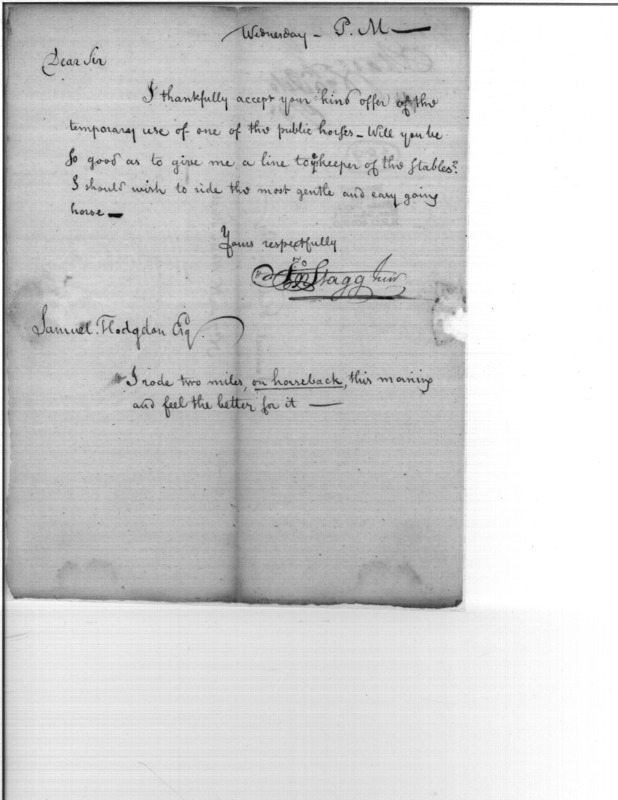 Wednesday - P. M -
Dear Sir
I thankfully accept your kind offer of the
temporary use of one of the public horses - Will you be
so good as to give me a line to ye keeper of the Stables?
I should wish to ride the most gentle and easy going
horse -
Yours respectfully
Jno Stagg Junr
Samuel Hodgdon Esqr
I rode two miles, on horseback, this morning
and feel the better for it -